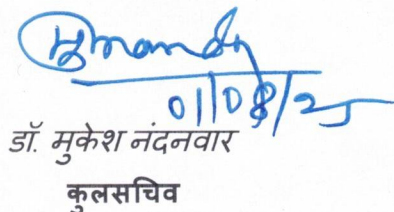 01/08/25
डॉ. मुकेश नंदनवार
कुलसचिव